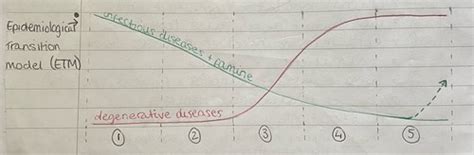 Epidemiological
Transition
model (ETM)
infectious diseases + famine
degenerative diseases
1 2 3 4 5